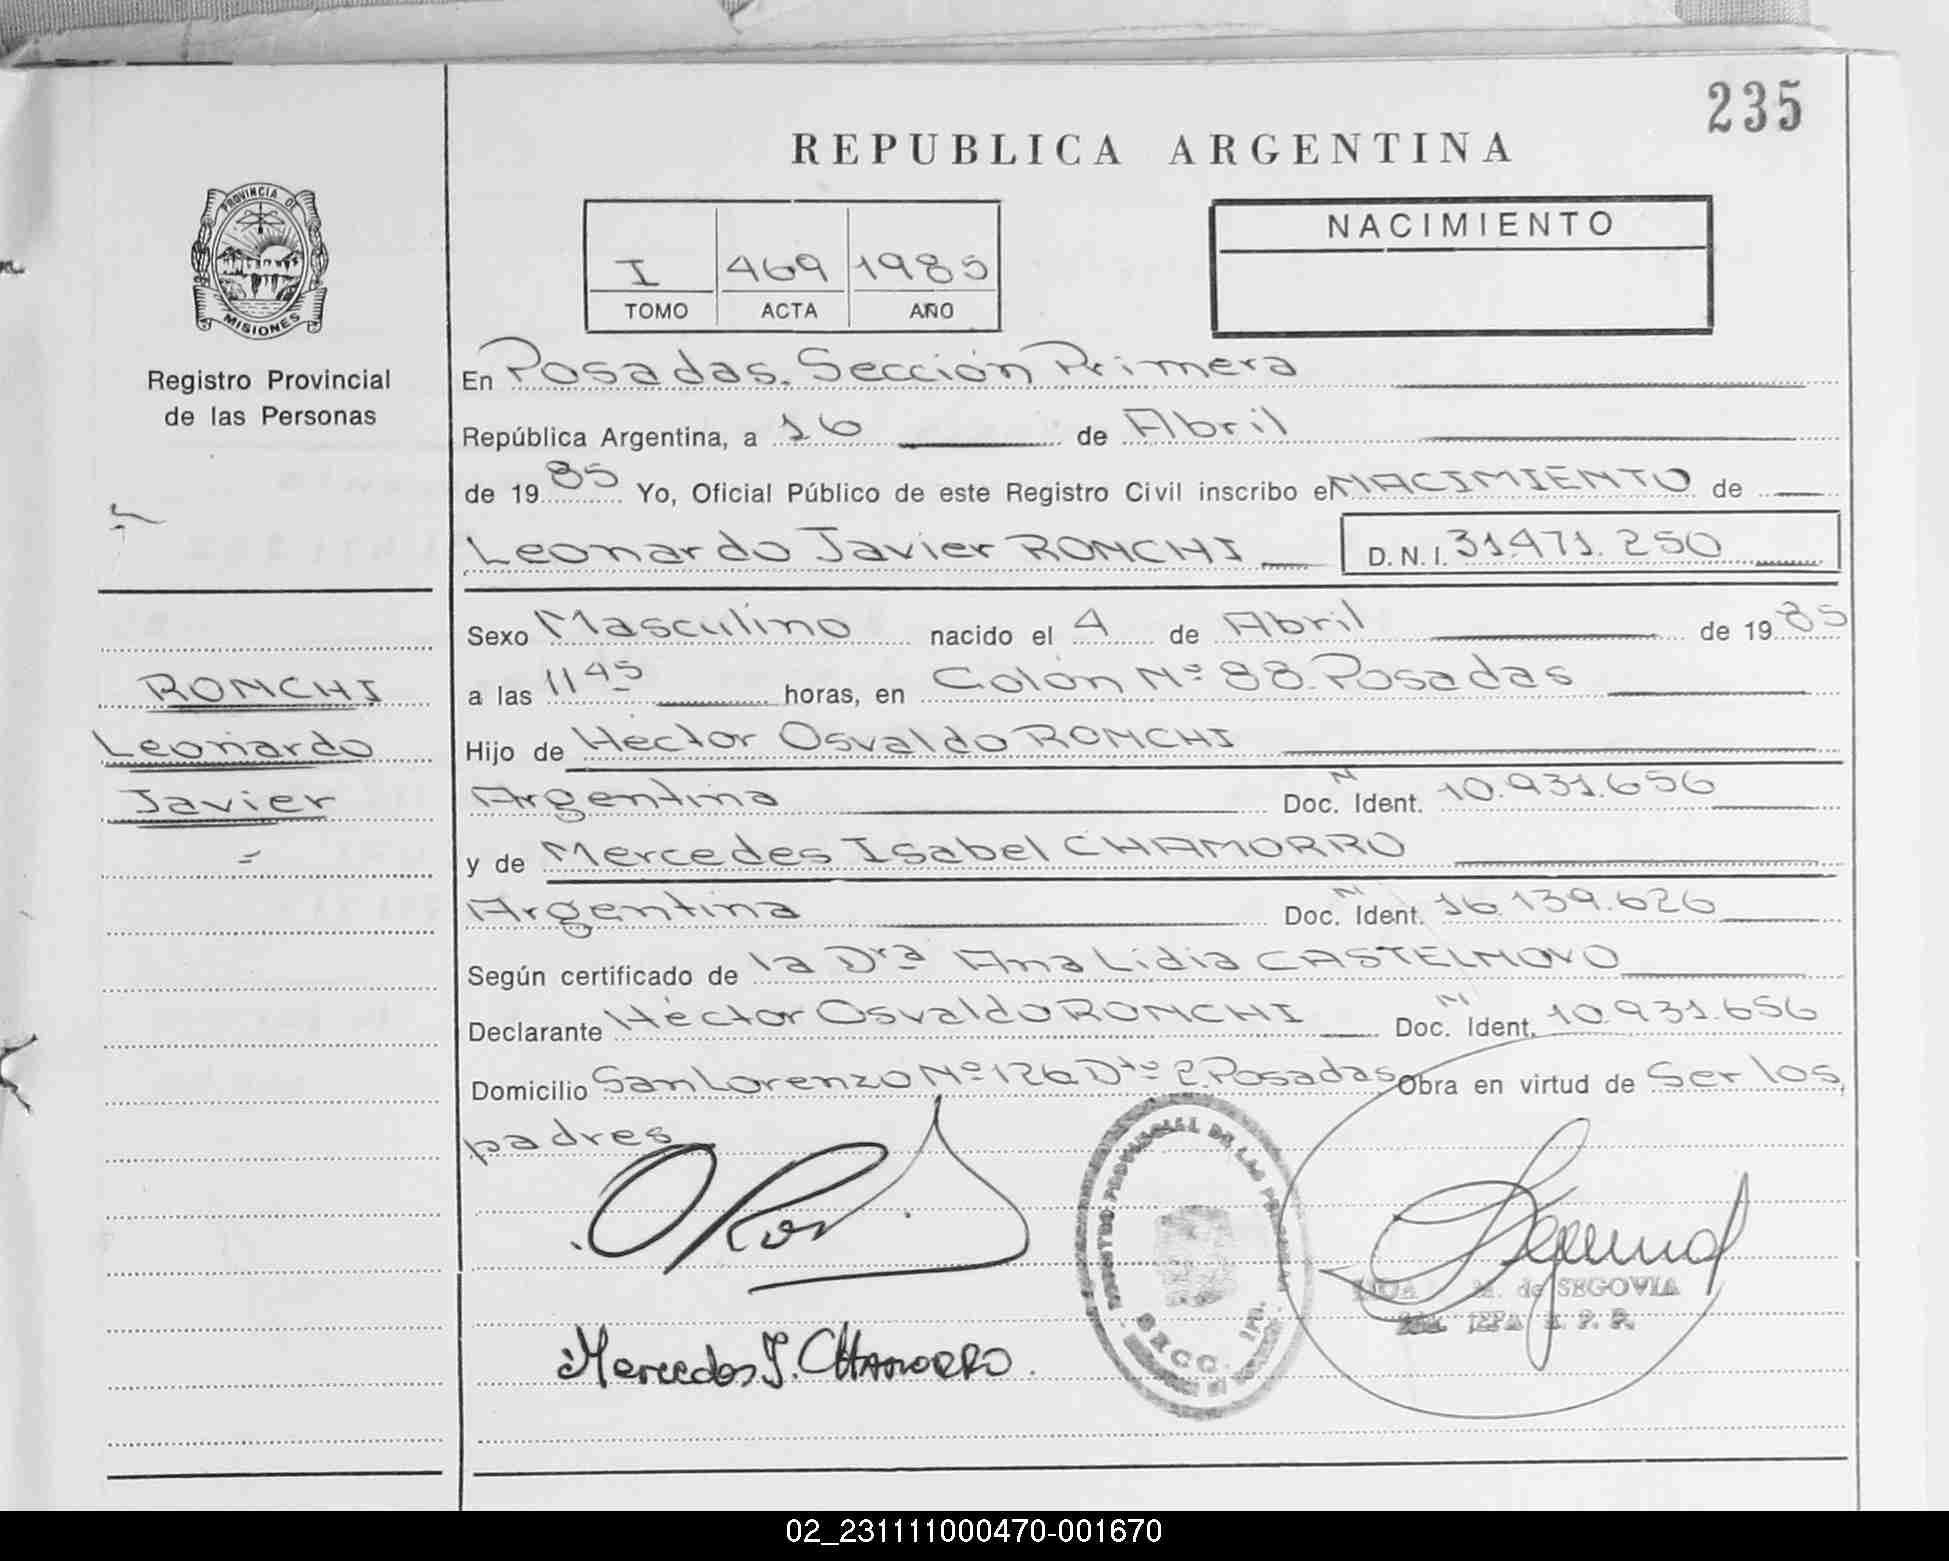 235
REPUBLICA ARGENTINA
PROVINCIA DE
MISIONES
Registro Provincial
de las Personas
I 469 1985
TOMO ACTA AÑO
NACIMIENTO
En Posadas. Sección Primera
República Argentina, a 16 de Abril
de 1985 Yo, Oficial Público de este Registro Civil inscribo el NACIMIENTO de
Leonardo Javier RONCHI D.N.I. 31.471.250
Sexo Masculino nacido el 4 de Abril de 1985
a las 11 45 horas, en Colón Nº 88. Posadas
Hijo de Héctor Osvaldo RONCHI
Argentina Doc. Ident. N 10.931.656
y de Mercedes Isabel CHAMORRO
Argentina Doc. Ident. N 16.139.626
Según certificado de la Dra Ana Lidia CASTELNOVO
Declarante Héctor Osvaldo RONCHI Doc. Ident. N 10.931.656
Domicilio San Lorenzo Nº 126 Dto 2. Posadas Obra en virtud de Ser los
padres
RONCHI
Leonardo
Javier
Mercedes I. CHAMORRO.
REGISTRO PROVINCIAL DE LAS
SECC. 1ra.
de SEGOVIA
JEFA R. P. P.
02_231111000470-001670